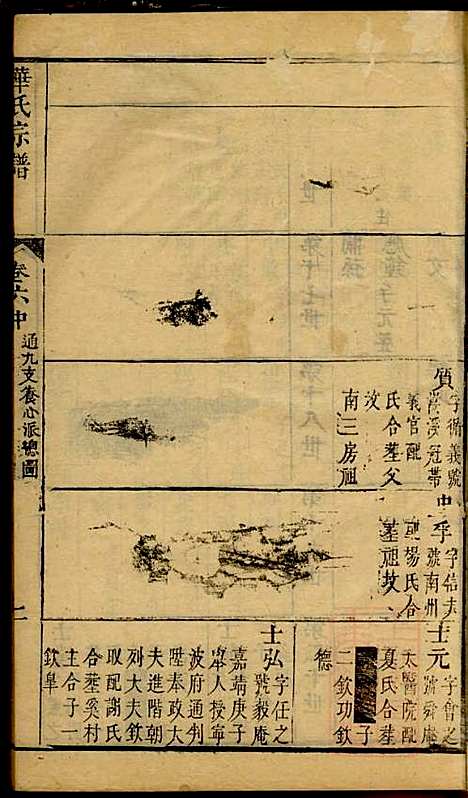 質
字循義號
溪冠帶
義官配
氏合塟父
汶
南三房祖
中孚
字信夫
號南州
配楊氏合
塟祖坟
士元
字會之
號舜庵
太醫院配
夏氏合塟
子
二欽功欽
德
士弘
字任之
號毅庵
嘉靖庚子
舉人授寧
波府通判
陞奉政大
夫進階朝
列大夫欽
取配謝氏
合塟奚村
主合子一
欽皐
華氏宗譜
卷六中
通九支養心派總圖
二